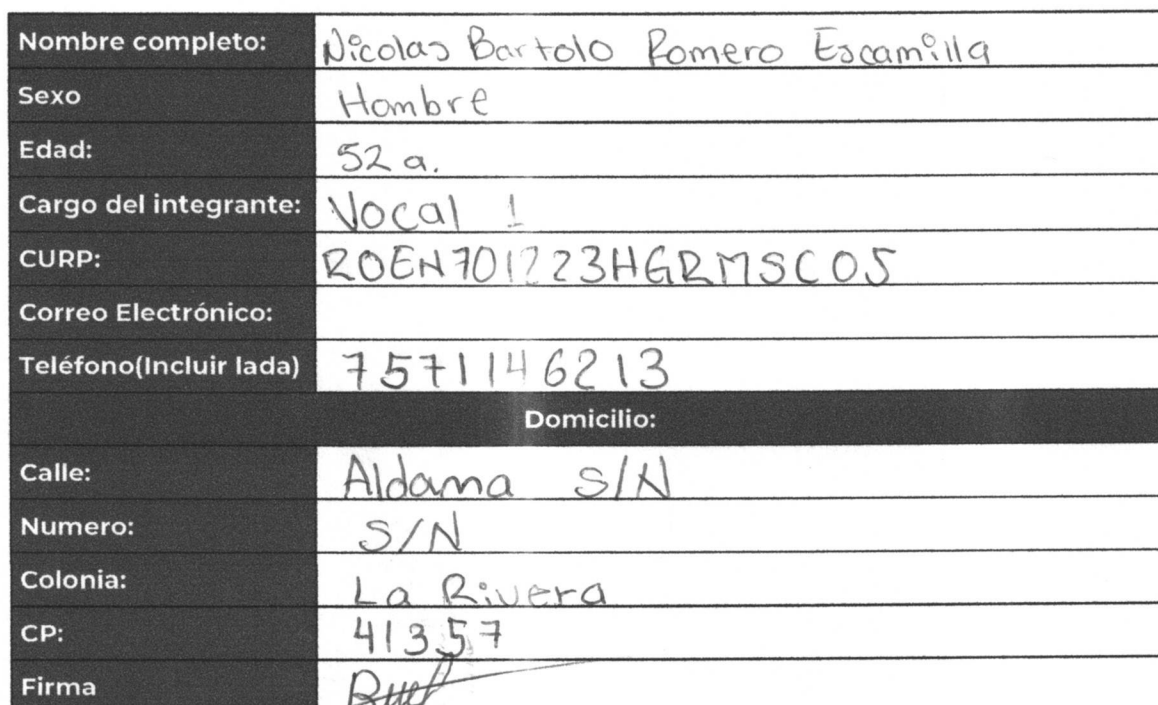 Nombre completo: Nicolas Bartolo Romero Escamilla
Sexo Hombre
Edad: 52 a.
Cargo del integrante: Vocal 1
CURP: ROEN701223HGRMSC05
Correo Electrónico:
Teléfono(Incluir lada) 7571146213
Domicilio:
Calle: Aldama S/N
Numero: S/N
Colonia: La Rivera
CP: 41357
Firma